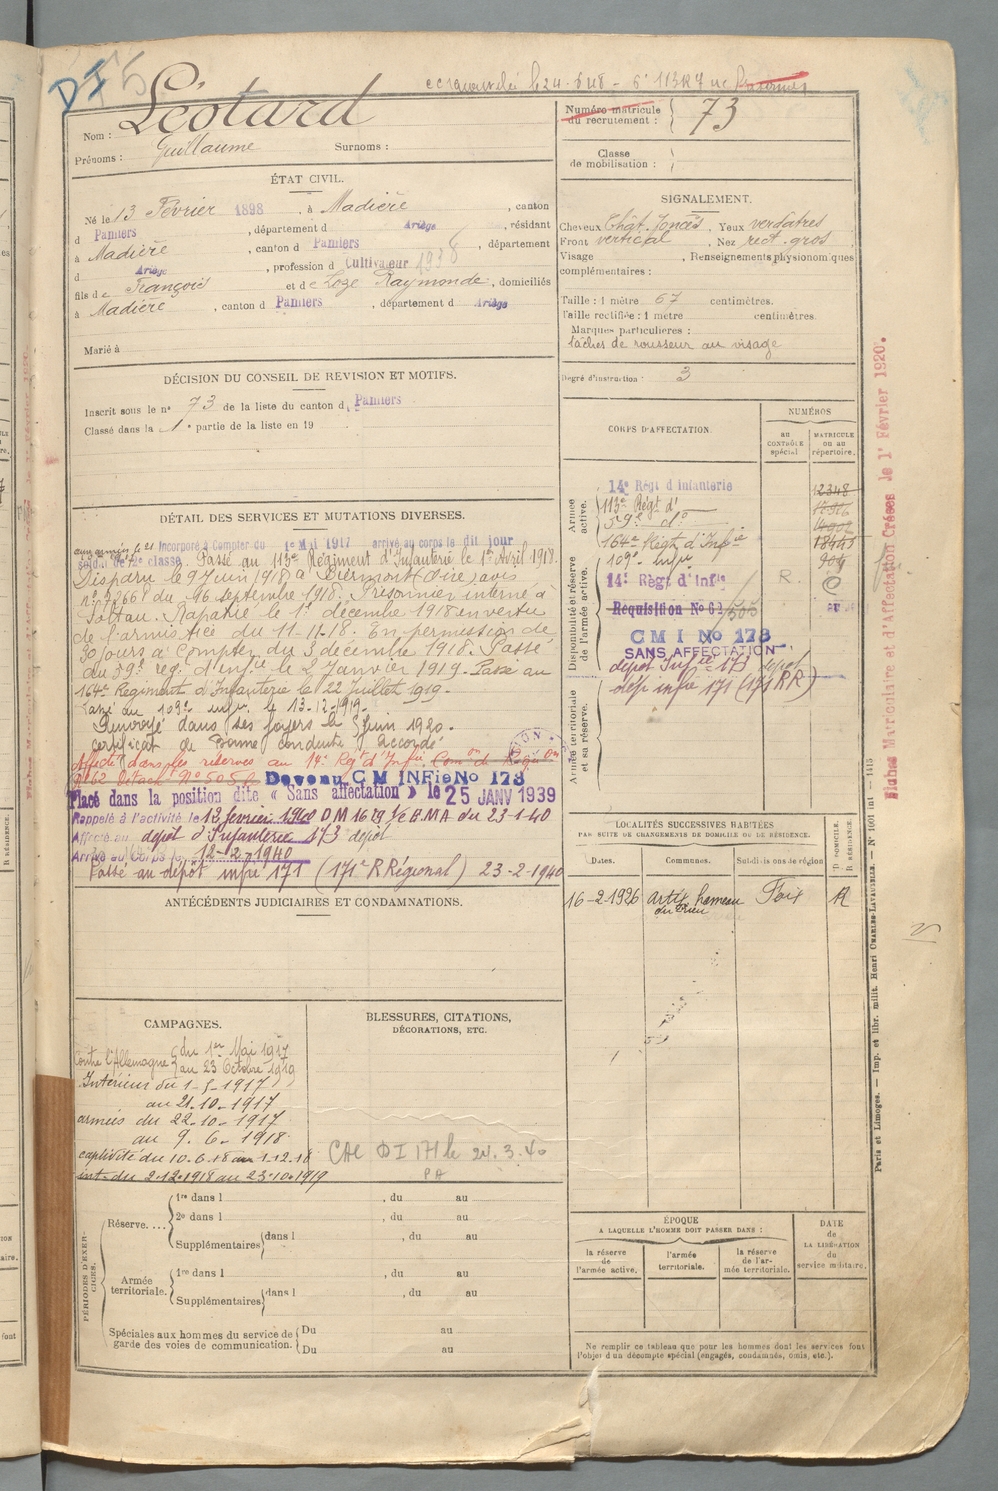 DI
Nom : Léotard
Prénoms : Guillaume Surnoms :
Numéro matricule du recrutement : 73
Classe de mobilisation :
ÉTAT CIVIL.
Né le 13 Février 1898, à Madière, canton
d Pamiers, département d Ariège, résidant
à Madière, canton d Pamiers, département
d Ariège, profession d Cultivateur
fils de François et de Loze Raymonde, domiciliés
à Madière, canton d Pamiers, département d Ariège
Marié à
SIGNALEMENT.
Cheveux Chât. foncés, Yeux verdâtres
Front vertical, Nez rect. gros
Visage , Renseignements physionomiques
complémentaires :
Taille : 1 mètre 67 centimètres.
Taille rectifiée : 1 mètre centimètres.
Marques particulières :
tâches de rousseur au visage
Degré d'instruction : 3
DÉCISION DU CONSEIL DE REVISION ET MOTIFS.
Inscrit sous le n° 73 de la liste du canton d Pamiers
Classé dans la 1e partie de la liste en 19
DÉTAIL DES SERVICES ET MUTATIONS DIVERSES.
Incorporé à Compter du 1e Mai 1917 arrivé au corps le dit jour
soldat de 2e classe. Passé au 113e Régiment d'Infanterie le 1er Avril 1918.
Disparu le 9 Juin 1918 à avis
n° du 26 septembre 1918. Prisonnier interné à
Soltau. Rapatrié le 1er décembre 1918 en vertu
de l'armistice du 11-11-18. En permission de
30 jours à Compter du 3 décembre 1918. Passé
au 59e rég. d'infie le 2 Janvier 1919. Passé au
164e Régiment d'Infanterie le 22 Juillet 1919.
Passé au 109e infie le 13-12-1919.
Renvoyé dans ses foyers le Juin 1920.
certificat de Bonne conduite accordé
Affecté dans les réserves au 14e Régt d'Infie. Comon de Réquon
n° 62 Détach n° Devenu C M INFie No 173
Placé dans la position dite « Sans affectation » le 25 JANV 1939
Rappelé à l'activité le 12 février 1940 D M B.M.A du 23-1-40
Affecté au dépôt d'Infanterie 173 dépôt
Arrivé au Corps le 12-2-1940
Passé au dépôt infie 171 (171e R Régional) 23-2-1940
ANTÉCÉDENTS JUDICIAIRES ET CONDAMNATIONS.
CORPS D'AFFECTATION.
NUMÉROS
au CONTRÔLE spécial
MATRICULE ou au répertoire.
Armée active.
14e Régt d'Infanterie 12348
113e Régt d°
59e d°
164e Régt d'Infie 18445
109e infie
Disponibilité et réserve de l'armée active.
14e Régt d'Infie R.
Réquisition No 62
C M I No 173
SANS AFFECTATION
dépôt Infie 173 dépôt
dép. infie 171 (171 RR)
Armée territoriale et sa réserve.
LOCALITÉS SUCCESSIVES HABITÉES
PAR SUITE DE CHANGEMENTS DE DOMICILE OU DE RÉSIDENCE.
Dates. Communes. Subdivisions de région D DOMICILE. R RÉSIDENCE.
16-2-1926 Artix hameau Foix R
CAMPAGNES.
Contre l'Allemagne du 1er Mai 1917
au 23 Octobre 1919
Intérieur du 1-5-1917
au 21-10-1917
armées du 22-10-1917
au 9-6-1918
captivité du 10.6.18 au 1.12.18
int. du 2.12.1918 au 23.10.1919
BLESSURES, CITATIONS,
DÉCORATIONS, ETC.
DI 171 le 24.3.40
PÉRIODES D'EXERCICES.
Réserve....
1re dans l , du au
2e dans l , du au
Supplémentaires dans l , du au
Armée territoriale.
1re dans l , du au
Supplémentaires dans l , du au
Spéciales aux hommes du service de garde des voies de communication.
Du au
Du au
ÉPOQUE
A LAQUELLE L'HOMME DOIT PASSER DANS :
la réserve de l'armée active.
l'armée territoriale.
la réserve de l'armée territoriale.
DATE de LA LIBÉRATION du service militaire.
Ne remplir ce tableau que pour les hommes dont les services font
l'objet d'un décompte spécial (engagés, condamnés, omis, etc.).
Fiches Matriculaire et d'Affectation Créées le 1er Février 1920.
Paris et Limoges. — Imp. et libr. milit. Henri CHARLES-LAVAUZELLE. —